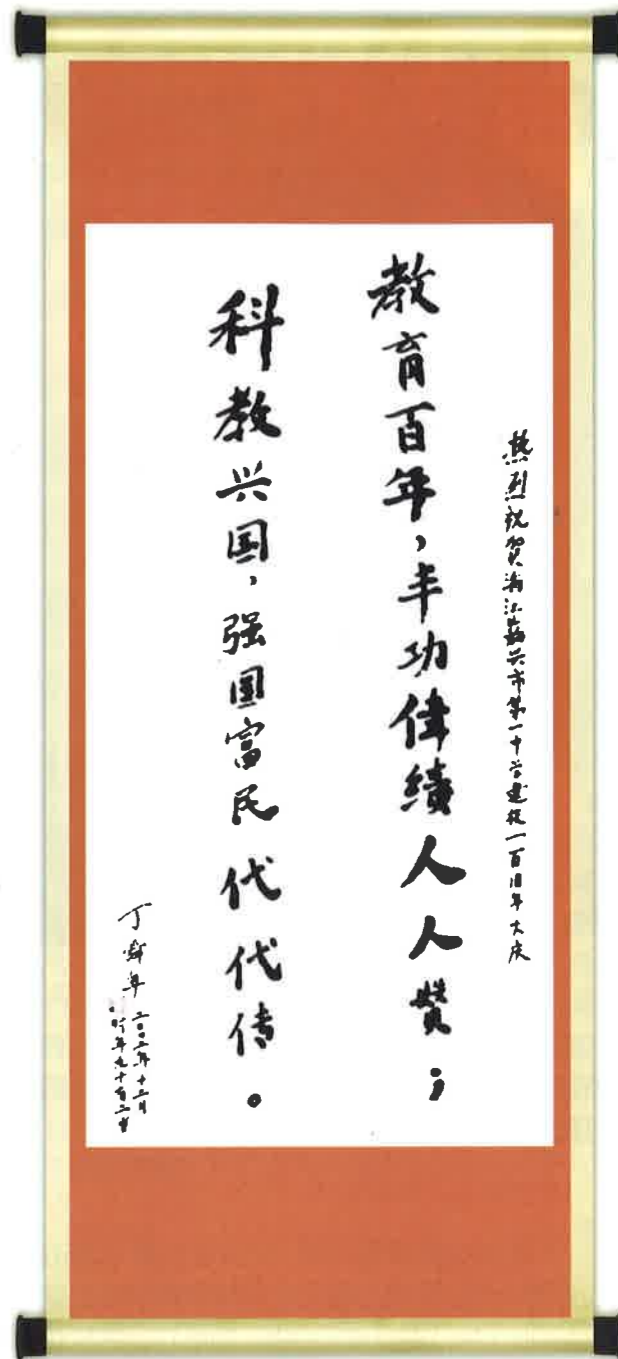 热烈祝贺浙江嘉兴市第一中学建校一百周年大庆
教育百年，丰功偉績人人贊；
科教兴国，强国富民代代传。
丁舜年 二〇〇二年十二月
时年九十有二岁